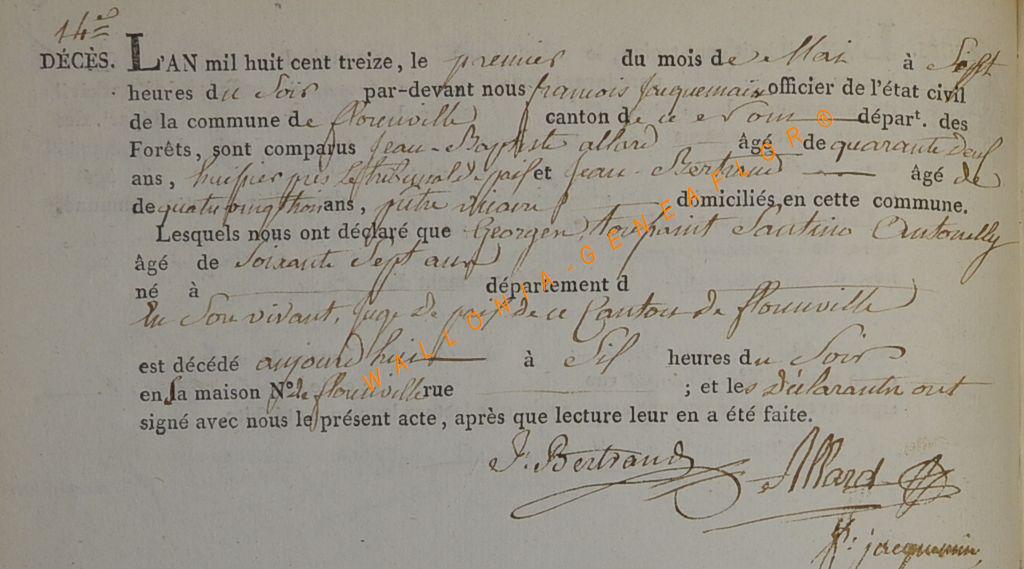 14e
DÉCÈS. L'AN mil huit cent treize, le premier du mois de Mai à Sept
heures du Soir par-devant nous francois Jacquemain officier de l'état civil
de la commune de florenville canton de ce nom départ. des
Forêts, sont comparus Jean-Baptiste allard âgé de quarante deux
ans, huissier près le tribunal de paix et Jean-Bertrand âgé de
de quatre vingt trois ans, domiciliés en cette commune.
Lesquels nous ont déclaré que Georgen toussaint Santino Antonelly
âgé de Soixante Sept ans
né à département d
En Son vivant, Juge de paix de ce Canton de florenville
est décédé aujourd'hui à Six heures du Soir
en Sa maison N.º de florenville rue ; et les déclarants ont
signé avec nous le présent acte, après que lecture leur en a été faite.
J. Bertrand Allard
fr: jacquemin
WALLONIA-GENEAFLOR®